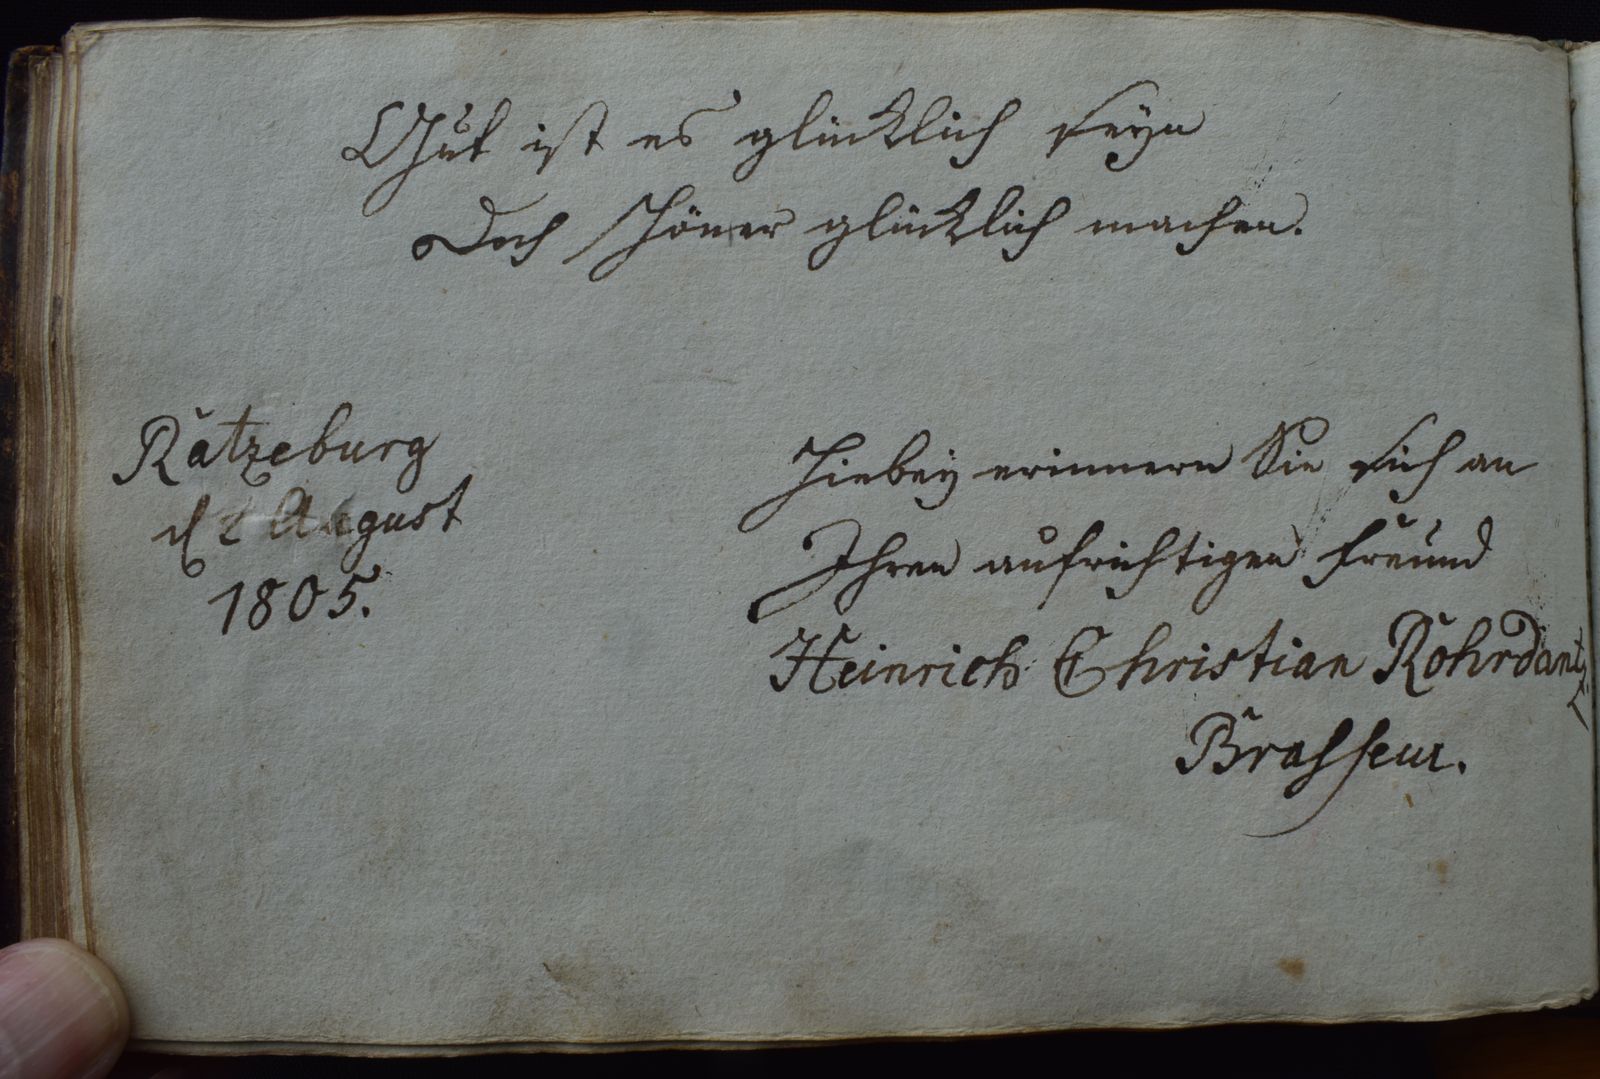 Gut ist es glücklich seyn
Doch schöner glücklich machen.
Ratzeburg
d 2 August
1805.
Hiebey erinnern Sie sich an
Ihren aufrichtigen Freund
Heinrich Christian Rohrdantz
Brasseur.